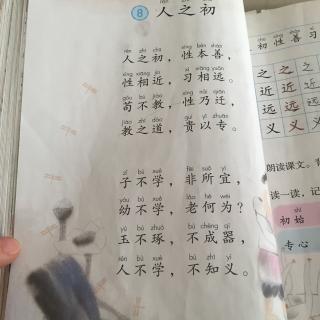 8 人之初
rén zhī chū xìng běn shàn
人之初，性本善，
xìng xiāng jìn xí xiāng yuǎn
性相近，习相远。
gǒu bú jiào xìng nǎi qiān
苟不教，性乃迁，
jiào zhī dào guì yǐ zhuān
教之道，贵以专。
zǐ bù xué fēi suǒ yí
子不学，非所宜，
yòu bù xué lǎo hé wéi
幼不学，老何为？
yù bù zhuó bù chéng qì
玉不琢，不成器，
rén bù xué bù zhī yì
人不学，不知义。
初性善习
之之
近近
远远
义义
朗读课文。
读一读，记
shǐ
初始
专心